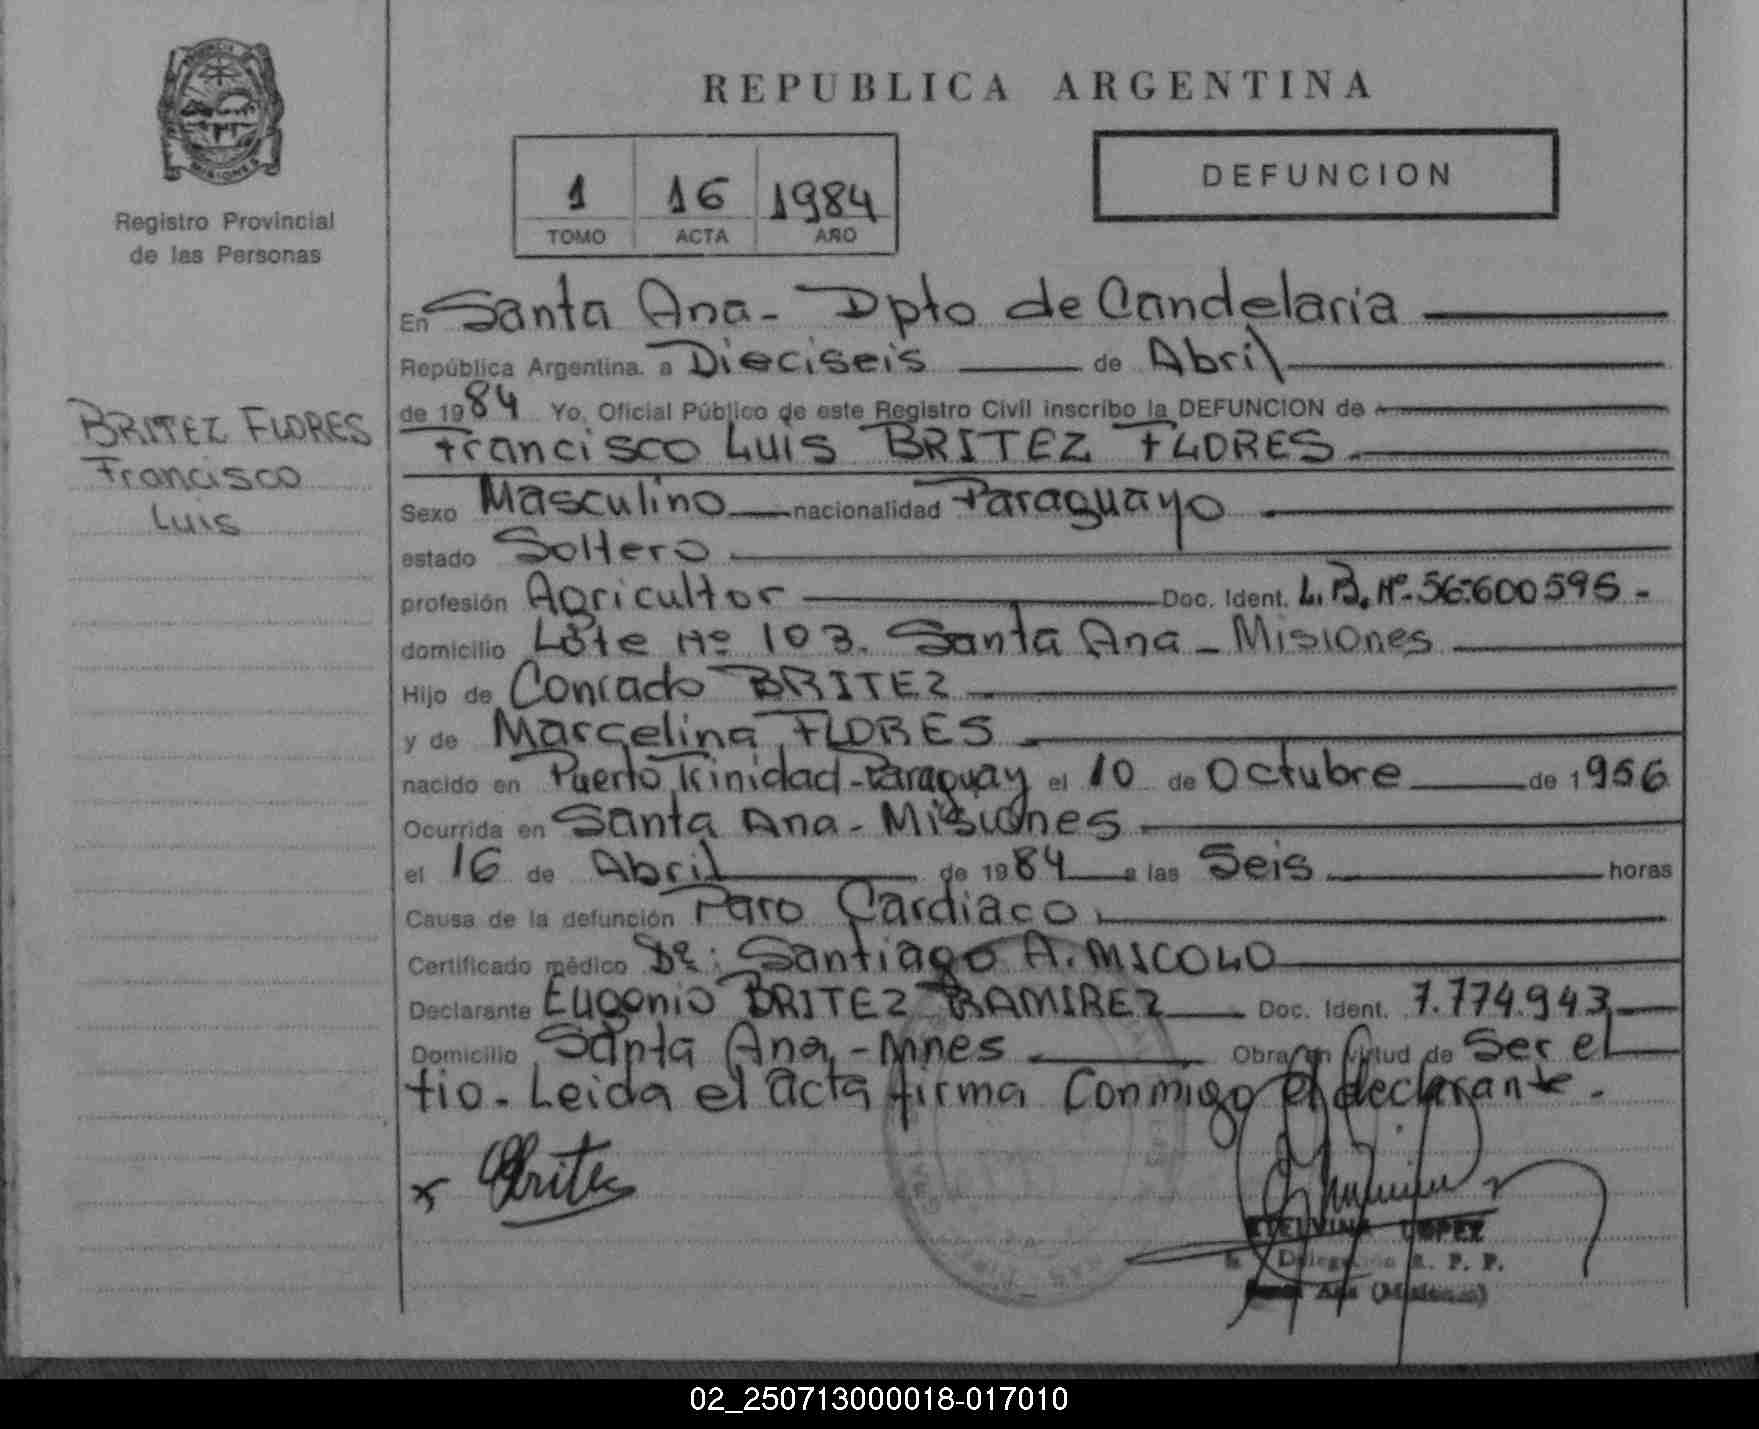 MISIONES
Registro Provincial
de las Personas
BRITEZ FLORES
Francisco
Luis
REPUBLICA ARGENTINA
1 16 1984
TOMO ACTA AÑO
DEFUNCION
En Santa Ana- Dpto de Candelaria
República Argentina. a Dieciseis de Abril
de 1984 Yo, Oficial Público de este Registro Civil inscribo la DEFUNCION de
Francisco Luis BRITEZ FLORES.
Sexo Masculino nacionalidad Paraguayo
estado Soltero
profesión Agricultor Doc. Ident. L.B. Nº- 56.600595-
domicilio Lote Nº 103. Santa Ana - Misiones
Hijo de Conrado BRITEZ
y de Marcelina FLORES
nacido en Puerto Trinidad-Paraguay el 10 de Octubre de 1956
Ocurrida en Santa Ana - Misiones
el 16 de Abril de 1984 a las Seis horas
Causa de la defunción Paro Cardiaco
Certificado médico Dr: Santiago A. MICOLO
Declarante Eugenio BRITEZ RAMIREZ Doc. Ident. 7.774.943
Domicilio Santa Ana, - Mnes Obra en virtud de Ser el
tio. Leida el acta firma Conmigo el declarante.
x Britez
ETELVINA LOPEZ
Delegación R. P. P.
Santa Ana (Misiones)
02_250713000018-017010